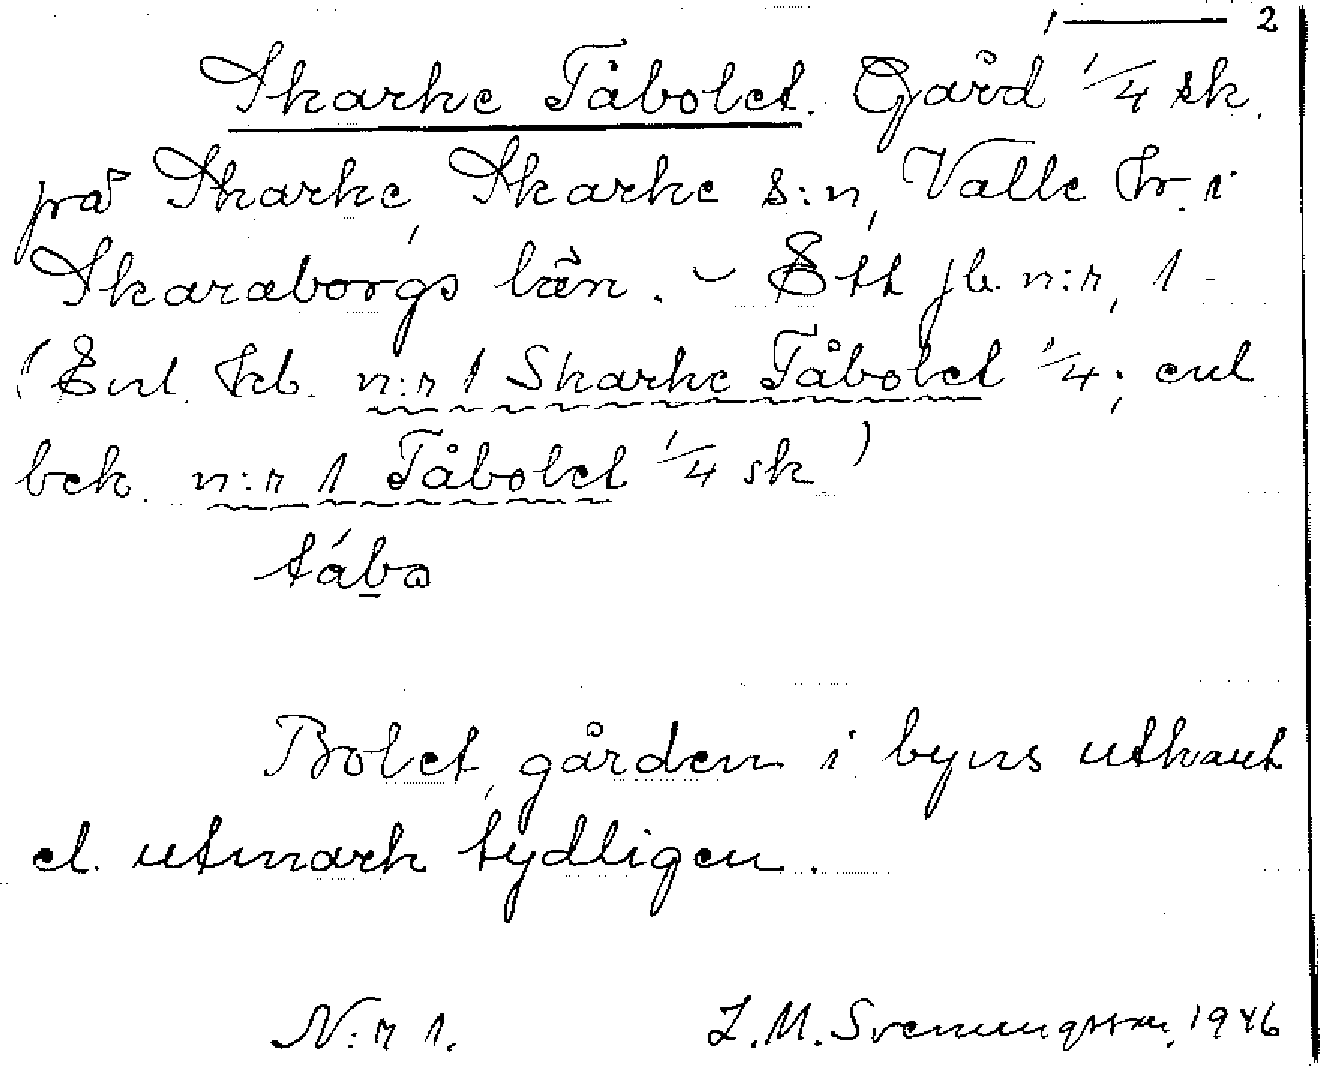 1 ——— 2
Skarke Tåbolet. Gård 1/4 sk.
på Skarke, Skarke s:n, Valle hr. i
Skaraborgs län. - Ett jb. n:r, 1 -
(Enl. kb. n:r 1 Skarke Tåbolet 1/4; enl
bek. n:r 1 Tåbolet 1/4 sk)
tábo
Bolet, gården i byns utkant
el. utmark tydligen.
N:r 1. L.M. Svenungsson, 1946